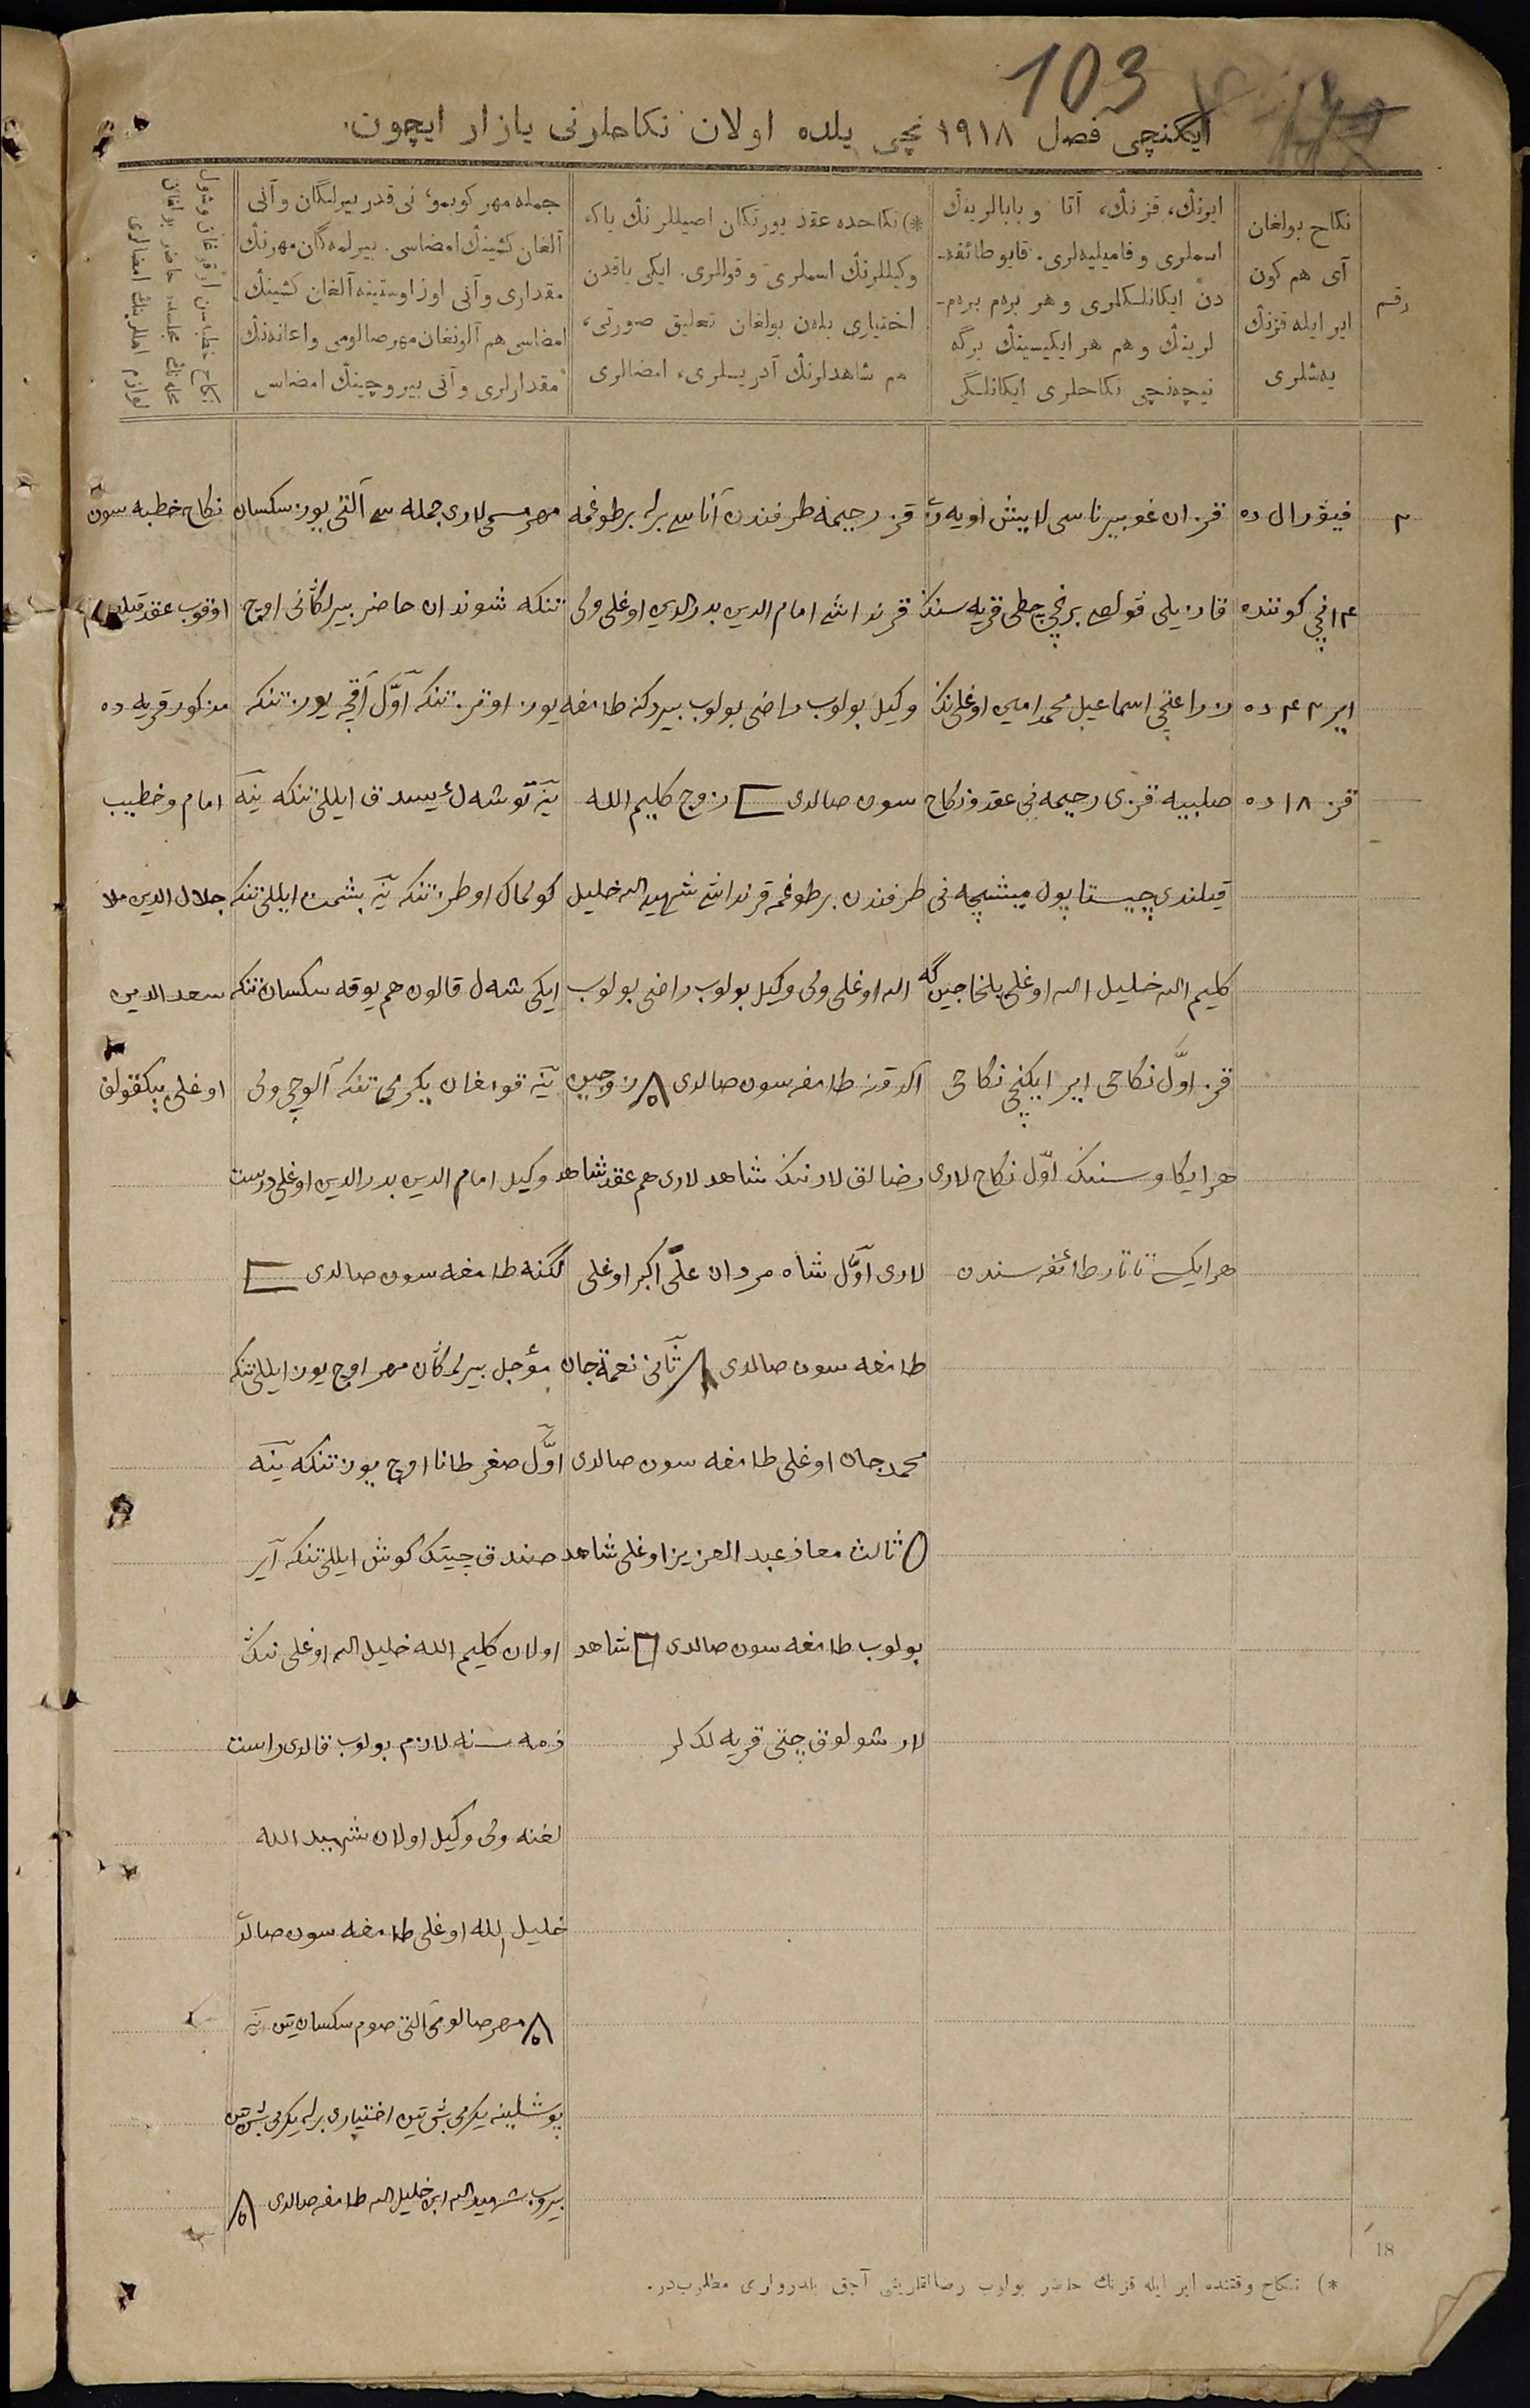 103
ایکنچی فصل ۱۹۱۸ نچی یلده اولان نکاحلرنی یازار ایچون.
رقم
نکاح بولغان
آی هم کون
ایر ایله قزنڭ
یەشلری
ایرنڭ، قزنڭ، آتا و بابالرینڭ
اسملری و فامیلیەلری. قایو طائفه-
دن ایکانلکلری و هر برەم برەم-
لرینڭ و هم هر ایکیسینڭ برگه
نیچەنچی نکاحلری ایکانلگی
*) نکاحده عقد یورتکان اصیللرنڭ یاکه
وکیللرنڭ اسملری و قوللری. ایکی یاقدن
اختیاری بلەن بولغان تعلیق صورتی،
هم شاهدلرنڭ آدریسلری، امضالری
جمله مهر کوبمو، نی قدر بیرلگان و آنی
آلغان کشینڭ امضاسی. بیرلمەگان مهرنڭ
مقداری و آنی اوز اوستینه آلغان کشینڭ
امضاسی هم آلونغان مهر صالومی و اعانەنڭ
مقدارلری و آنی بیروچینڭ امضاسی
نکاح خطبه‌سن اوقوغان وشول
مجلسده حاضر بولغان
امضالری
۲
فیۋرال ده
۱۴ نچی کوننده
ایر ۲۴ ده
قز ۱۸ ده
قزان غوبیرناسی لایش اویەزی
قادیلی ڤولصی برنچی چطی قریه سنڭ
زراعتچی اسماعیل محمد امین اوغلی نڭ
صلبیه قزی رحیمه نی عقد و نکاح
قیلندی چیستاپول میشچه نی
کلیم الله خلیل الله اوغلی بلخاجین گه
قز اوّل نکاحی ایر ایکنچی نکاحی
هر ایکاوسینڭ اوّل نکاح لاری
هر ایکی تاتار طائفه سندن
قز رحیمه طرفندن آناسی برله برطوغمه
قرنداشی امام الدین بدرالدین اوغلی ولی
وکیل بولوب راضی بولوب بیردکنه طامغه
سون صالدی زوج کلیم الله
طرفندن برطوغمه قرنداشی شهید الله خلیل
الله اوغلی ولی وکیل بولوب راضی بولوب
آلدقنه طامغه سون صالدی زوجین
رضالق لارنڭ شاهد لاری هم عقد شاهد
لاری اوّل شاه مردان علی اکبر اوغلی
طامغه سون صالدی ثانی نعمة جان
محمد جان اوغلی طامغه سون صالدی
ثالث معاذ عبد العزیز اوغلی شاهد
بولوب طامغه سون صالدی شاهد
لار شولوق چتی قریه لک لر
مهر مسمی لاری جمله سی آلتی یوز سکسان
تنکه شوندان حاضر بیرلگانی اوچ
یوز اوتز تنکه اوّل آقچه یوز تنکه
ینه توشەل ئیسدق ایللی تنکه ینه
کولماک اوطز تنکه ینه بشمت ایللی تنکه
ایکی شەل قالون هم یوقه سکسان تنکه
ینه قومغان یکرمی تنکه آلوچی ولی
وکیل امام الدین بدرالدین اوغلی درست
لگنه طامغه سون صالدی
مؤجل بیرلمەگان مهر اوچ یوز ایللی تنکه
اوّل صغر طانا اوچ یوز تنکه ینه
صندق چیتک کوش ایللی تنکه ایر
اولان کلیم الله خلیل الله اوغلی نڭ
ذمه سنه لازم بولوب قالدی راست
لغنه ولی وکیل اولان شهید الله
خلیل الله اوغلی طامغه سون صالدی
مهر صالومی آلتی صوم سکسان تین ینه
پوشلینه یکرمی بش تین اختیاری برله یکرمی بش تین
بیروب شهید الله ابن خلیل الله طامغه صالدی
نکاح خطبه سون
اوقوب عقد قیلدم
مذکور قریه ده
امام و خطیب
جلال الدین ملا
سعد الدین
اوغلی بیکقولف
18
*) نکاح وقتنده ایر ایله قزنڭ حاضر بولوب رضالقلرینی آچق بلدرولری مطلوبدر.